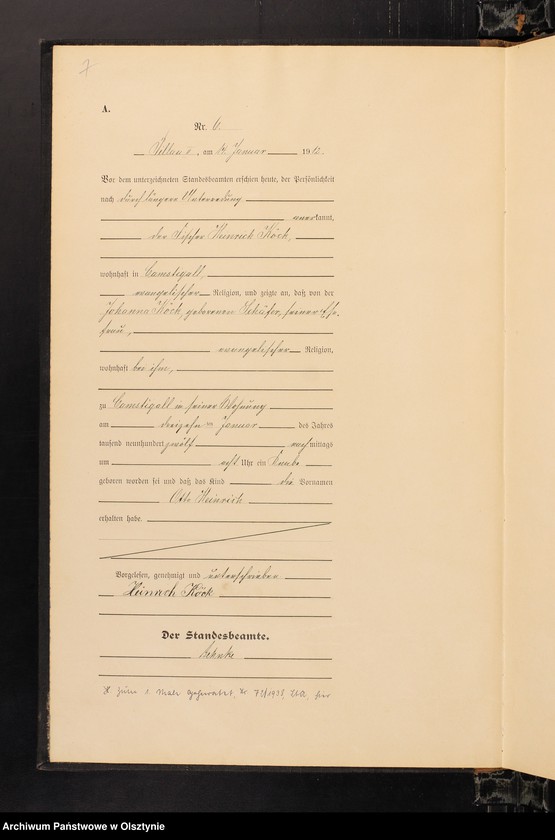 7
A.
Nr. 6.
Pillau I, am 14. Januar 1912.
Vor dem unterzeichneten Standesbeamten erschien heute, der Persönlichkeit
nach durch längere Unterredung
anerkannt,
der Fischer Heinrich Köck,
wohnhaft in Camstigall,
evangelischer Religion, und zeigte an, daß von der
Johanna Köck, geborenen Schäfer, seiner Ehe-
frau,
evangelischer Religion,
wohnhaft bei ihm,
zu Camstigall in seiner Wohnung
am dreizehnten Januar des Jahres
tausend neunhundert zwölf nachmittags
um acht Uhr ein Knabe
geboren worden sei und daß das Kind die Vornamen
Otto Heinrich
erhalten habe.
Vorgelesen, genehmigt und unterschrieben
Heinrich Köck
Der Standesbeamte.
1. Mal